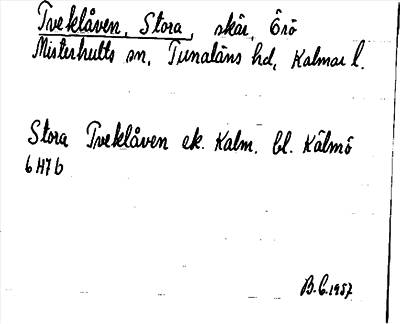 Tveklåven, Stora, skär, Örö
Misterhults sn, Tunaläns hd, Kalmar l.
Stora Tveklåven ek. Kalm. bl. Kälmö
6 H7 b
B.C. 1957